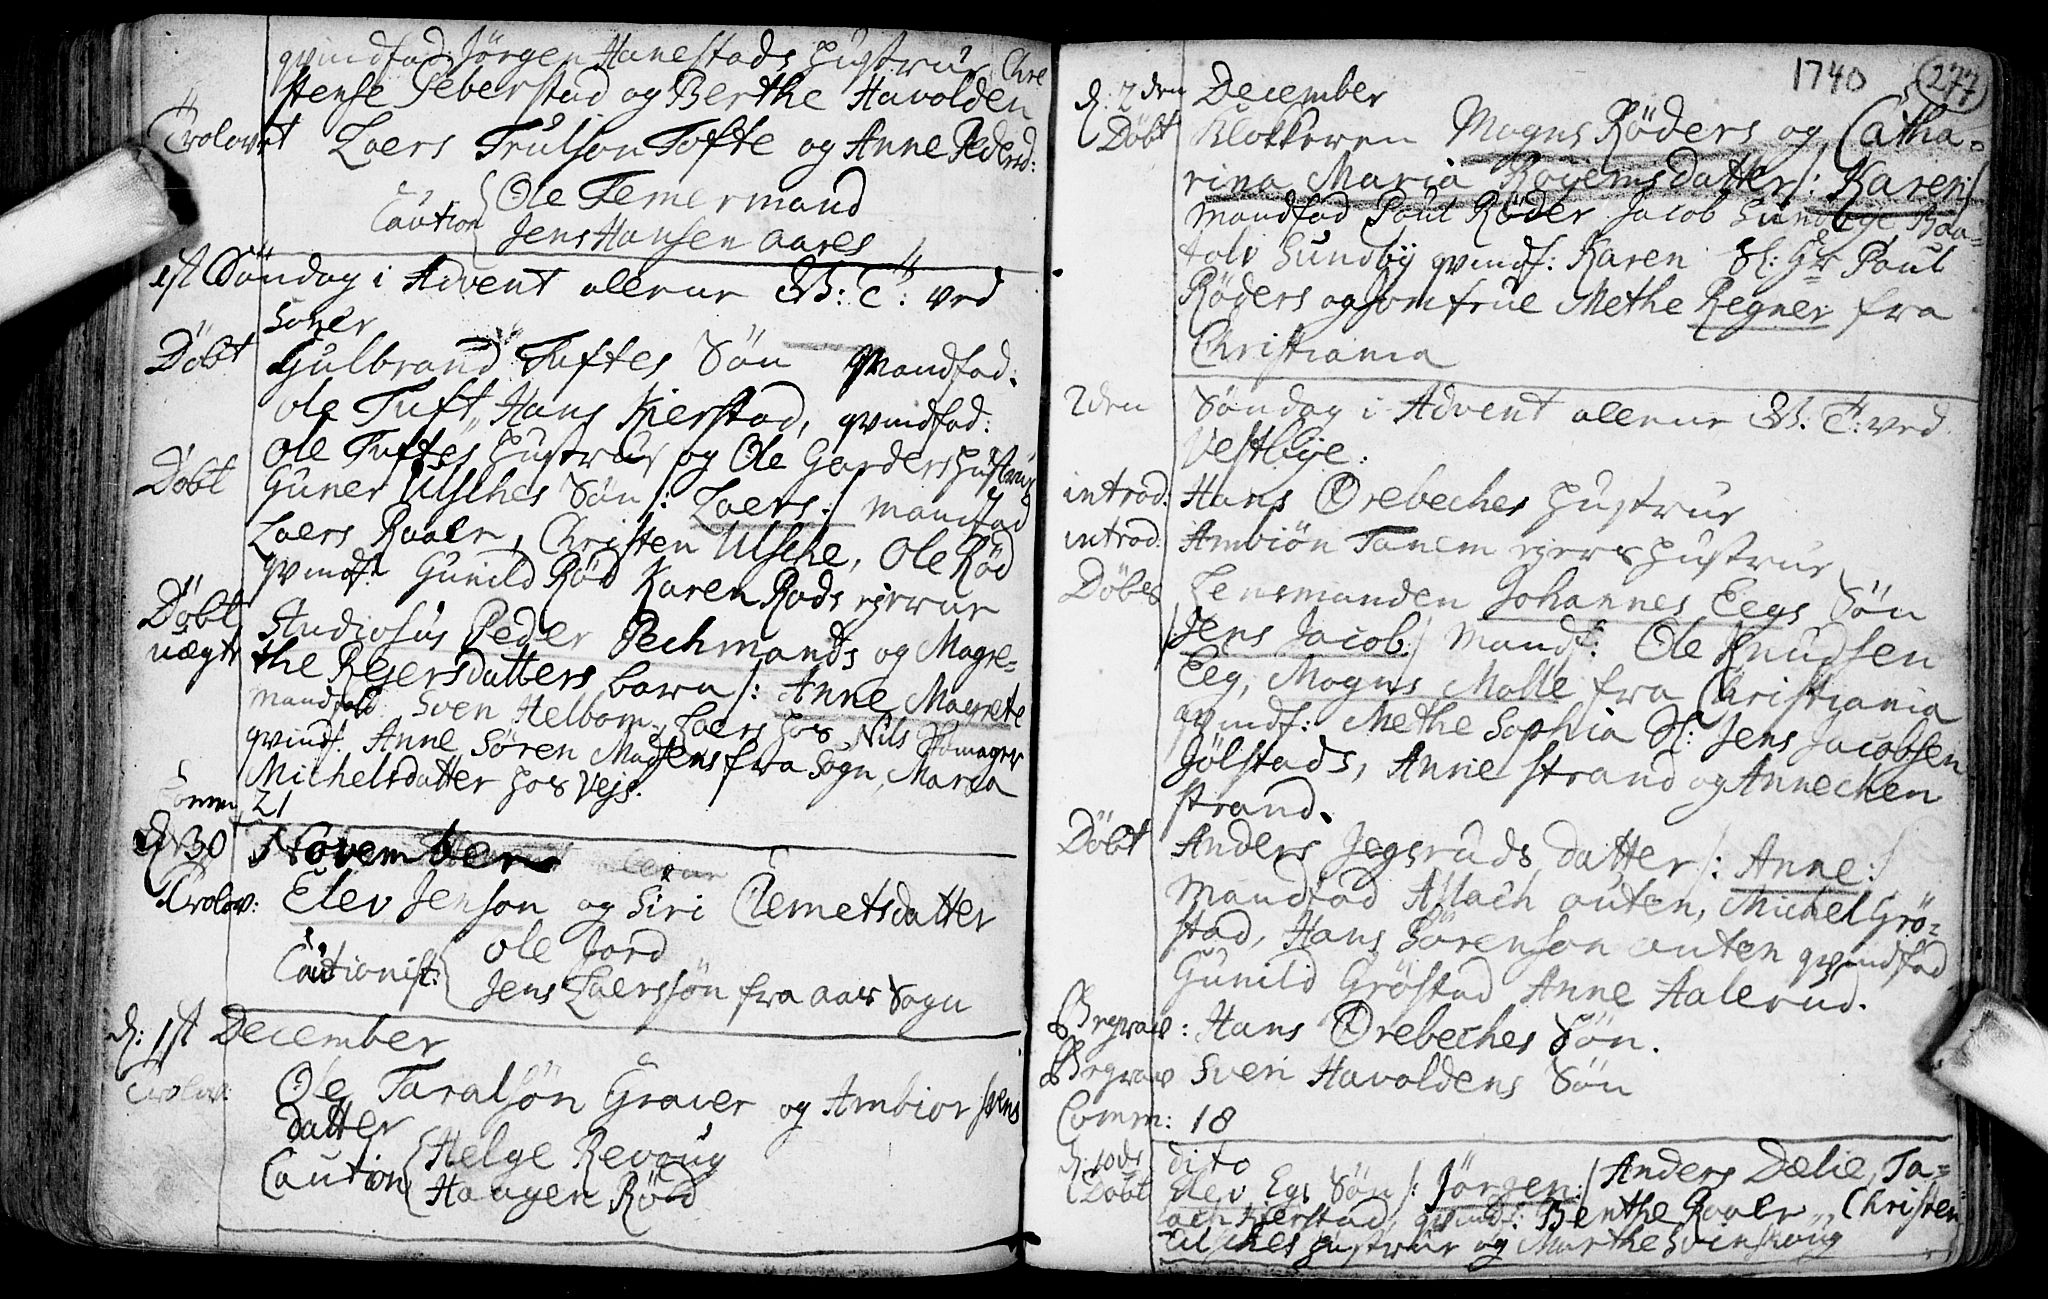 qvindfad: Jörgen Hanestads Hustrue, Chre
stense Feberstad og Berthe Havolden
Trolovet Laers Trulson Tofte og Anne Pedersd:
Caution Ole Temermand
Jens Hansen Aares
1st Söndag i Advent ved
Soner
Döbt Gulbrand Tuftes Sön Mandfad.
Ole Tuft, Hans Kierstad, qvindfad:
Ole Tuftes Hustrue og Ole Garders Hustrue
Döbt Guner Ulsches Sön /: Laers :/ mandfad
Laers Raaer, Christen Ulsche, Ole Röd
qvindf: Gunild Röd Karen Rods
Döbt Studiosus Peder Pechmands og Magre=
uægte the Rejersdatters barn /: Anne Magrete
mandfad Sven Helbom, Laers hos Nils Skomager
qvindf. Anne Sören Madsens fra Sogn, Maria
Michelsdatter hos Vejs.
Comm. 21
d. 30 November
Trolov: Elev Jenson og Siri Clemetsdatter
Cautionist: Ole Jord
Jens Laerssön fra Aas Sogn
d: 1st December
Trolov: Ole Taralsön Graver og Ambior Svens
datter
Caution Helge Revoug
Haagen Röed
1740 277
d. 2den December
Döbt Klokkeren Magns Röders og Catha=
rina Maria datter /: Karen :/
Mandfad Paul Röder Jacob Sundbye Baa=
tolv Sundby qvindf: Karen Sl: Hr Paul
Röders og Jomfrue Methe Regner fra
Christiania
2den Söndag i Advent ved
Vestbye:
introd: Hans Örebeches Hustrue
introd: Ambiön Tanem Hustrue
Döbes Lensmanden Johannes Eegs Sön
/Jens Jacob:/ Mandf: Ole Knudsen
Eeg, Magns Malle fra Christiania
qvindf: Methe Sophia Sl: Jens Jacobsen
Jölstads, Anne Strand og Annechen
Strand.
Döbt Anders Jegsruds datter /: Anne :/
Mandfad Aslach auten, Michel Grö=
stad, Hans Sörenson auten qvindfad
Gunild Gröstad Anne Aalerud.
Begrav: Hans Örebeches Sön.
Begrav Sven Havoldens Sön
Comm: 18
d: 10de dito
Döbt Elev Egs Sön /: Jörgen :/ Anders Dælie, Ta=
lach Kierstad, qvindf: Benthe Raaer, Christen
Ulsches Hustrue og Marthe Svenskoug